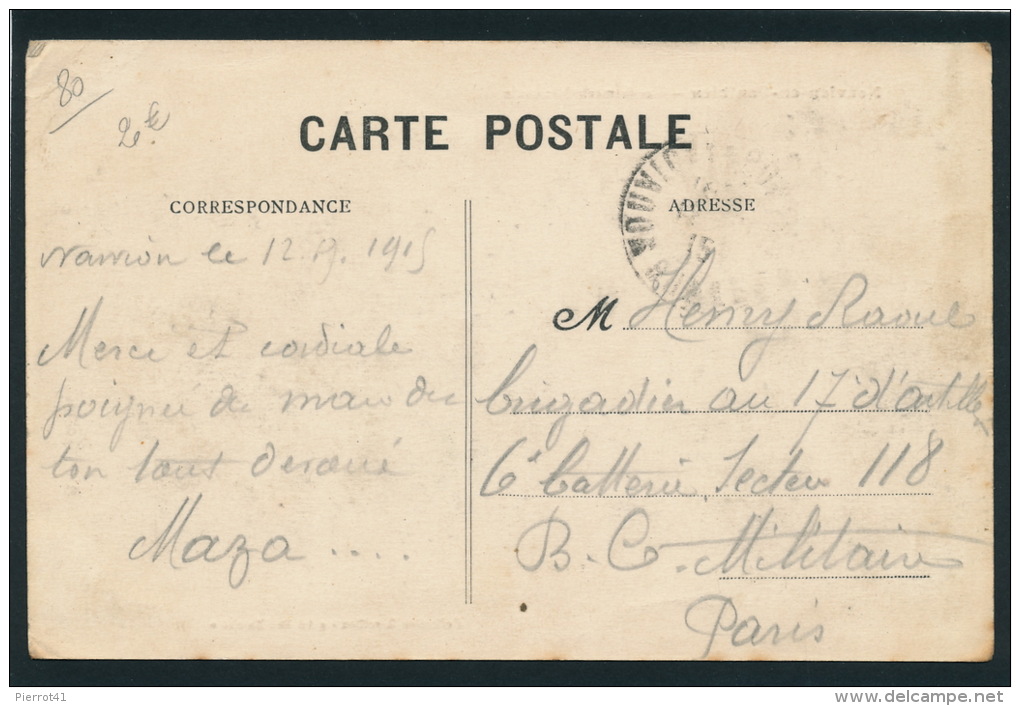 80
2€
CARTE POSTALE
CORRESPONDANCE
ADRESSE
NOUVION
15
le 12. 9. 1915
Merci et cordiale
poignée de main de
ton tout devoué
Maza ....
M Henry Raoul
brigadier au 17 d'artille
6e batterie, Secteur 118
B. C. Militaire
Paris
Pierrot41
www.delcampe.net